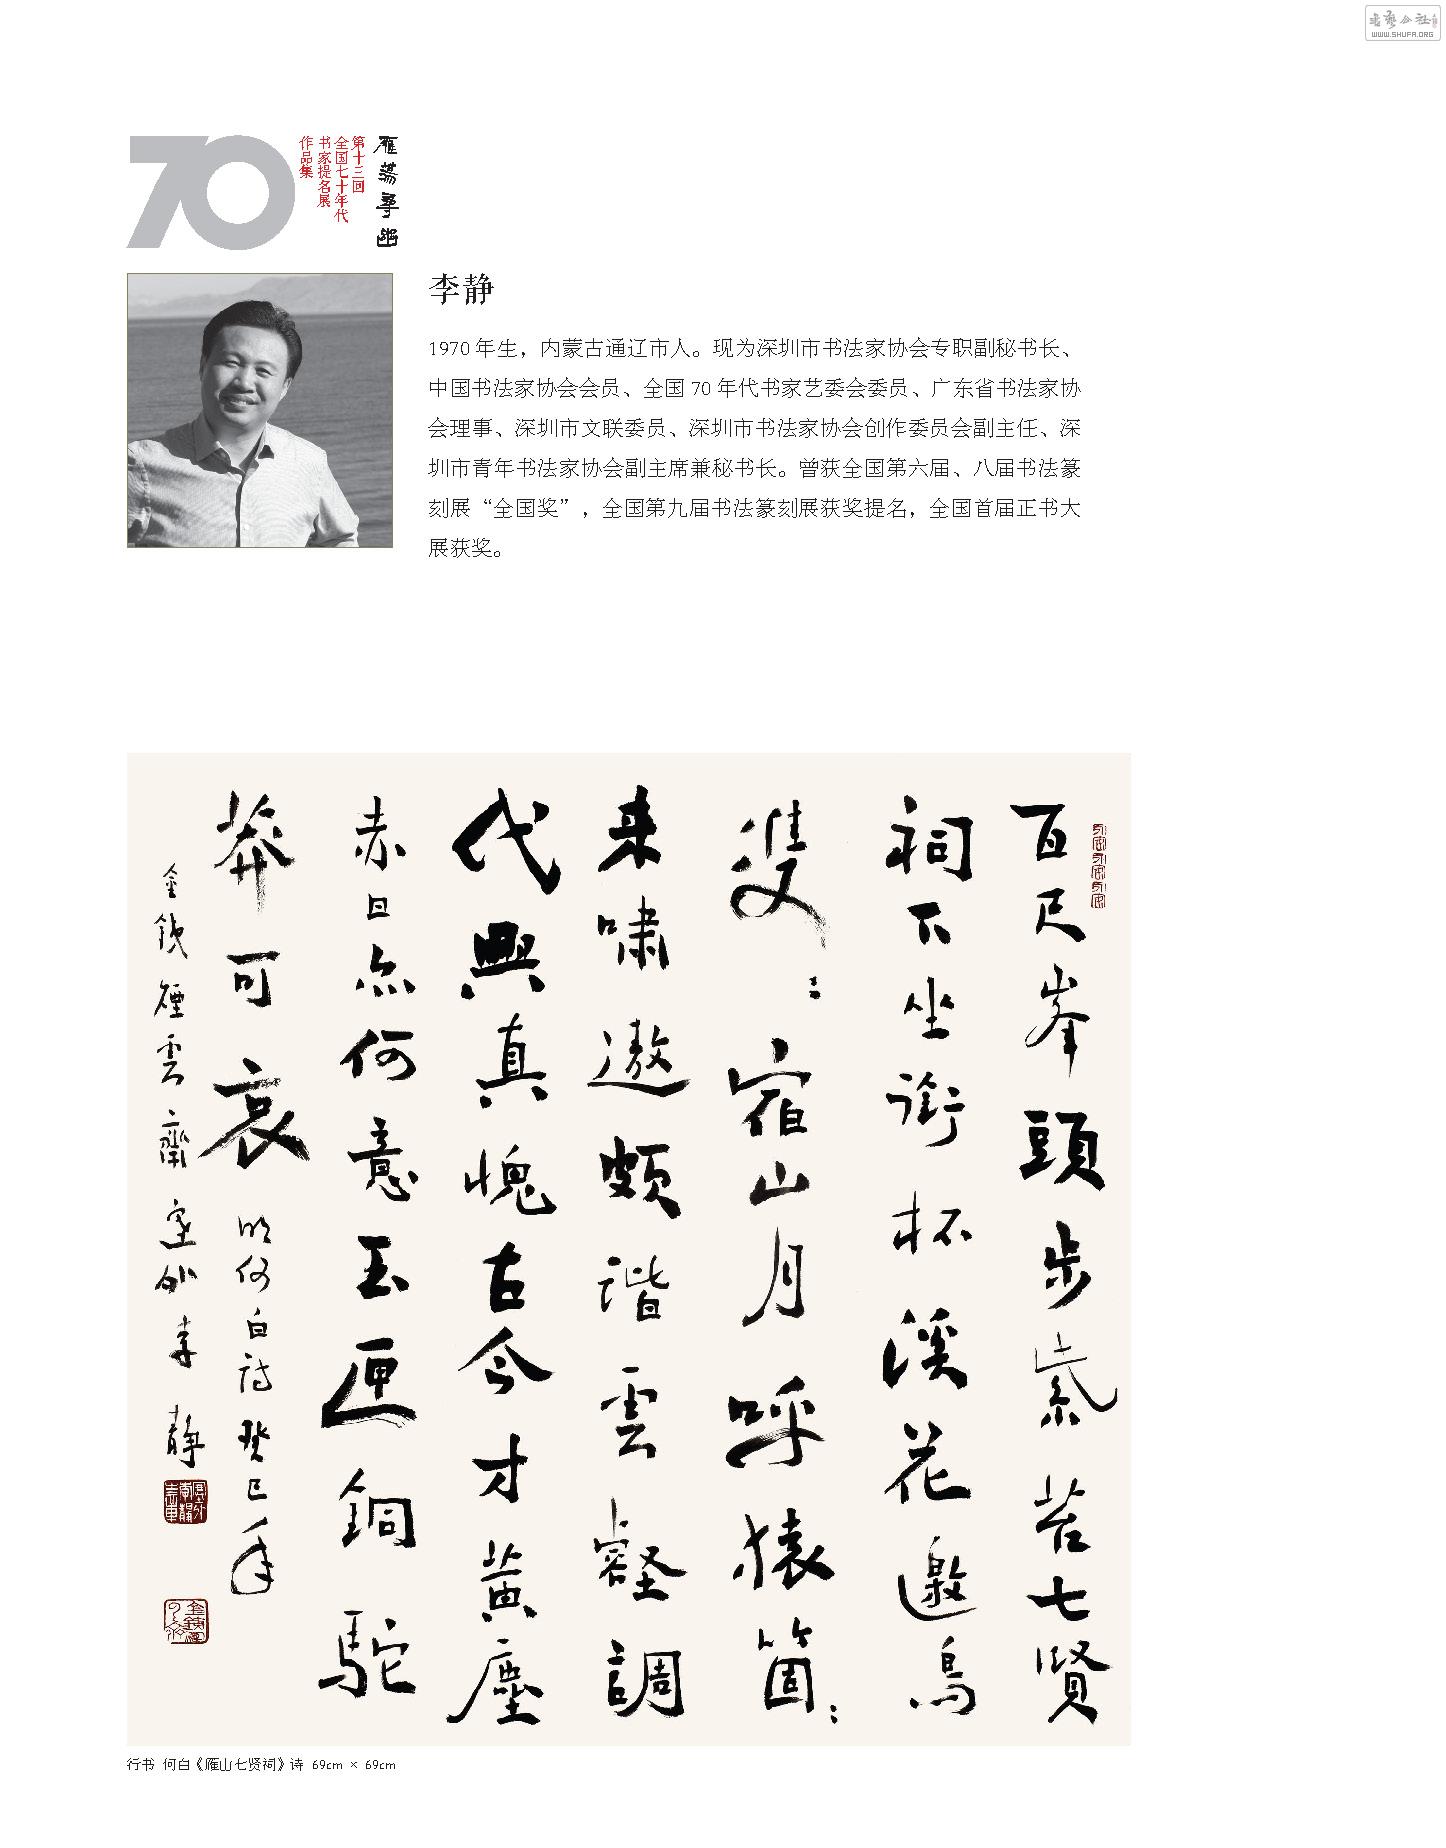 WWW.SHUFA.ORG
70
雁蕩尋幽
第十三回
全国七十年代
书家提名展
作品集
李静
1970 年生，内蒙古通辽市人。现为深圳市书法家协会专职副秘书长、
中国书法家协会会员、全国 70 年代书家艺委会委员、广东省书法家协
会理事、深圳市文联委员、深圳市书法家协会创作委员会副主任、深
圳市青年书法家协会副主席兼秘书长。曾获全国第六届、八届书法篆
刻展“全国奖”，全国第九届书法篆刻展获奖提名，全国首届正书大
展获奖。
百尺峯頭步紫苔七賢
祠下坐銜杯溪花邀鳥
雙〻宿山月呼猿箇〻
来嘯遨頗諧雲壑調
代興真愧古今才黃塵
赤日亦何意玉匣銅駝
莽可哀 明何白詩癸巳年
金錢煙雲齋塞外李靜
行书 何白《雁山七贤祠》诗 69cm × 69cm